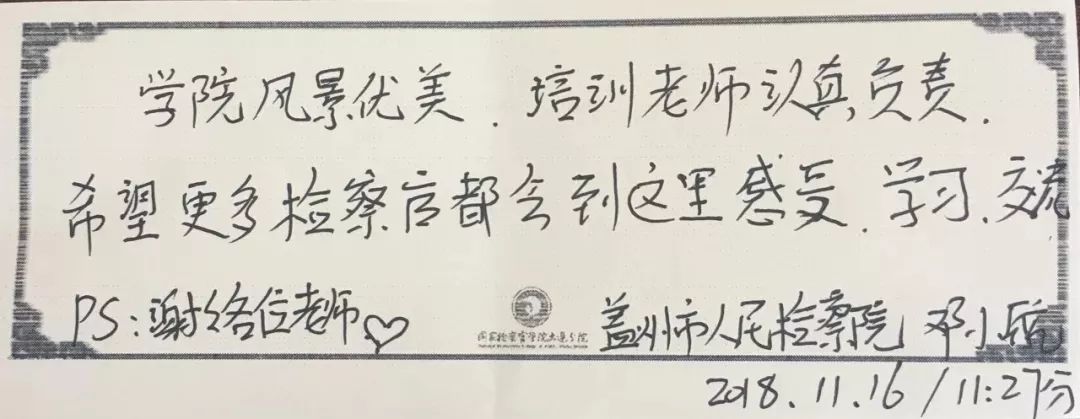 学院风景优美、培训老师认真负责.
希望更多检察官都会到这里感受、学习、交流
PS:谢谢各位老师♡
国家检察官学院大连分院
盖州市人民检察院 邓小
2018.11.16/11:27分